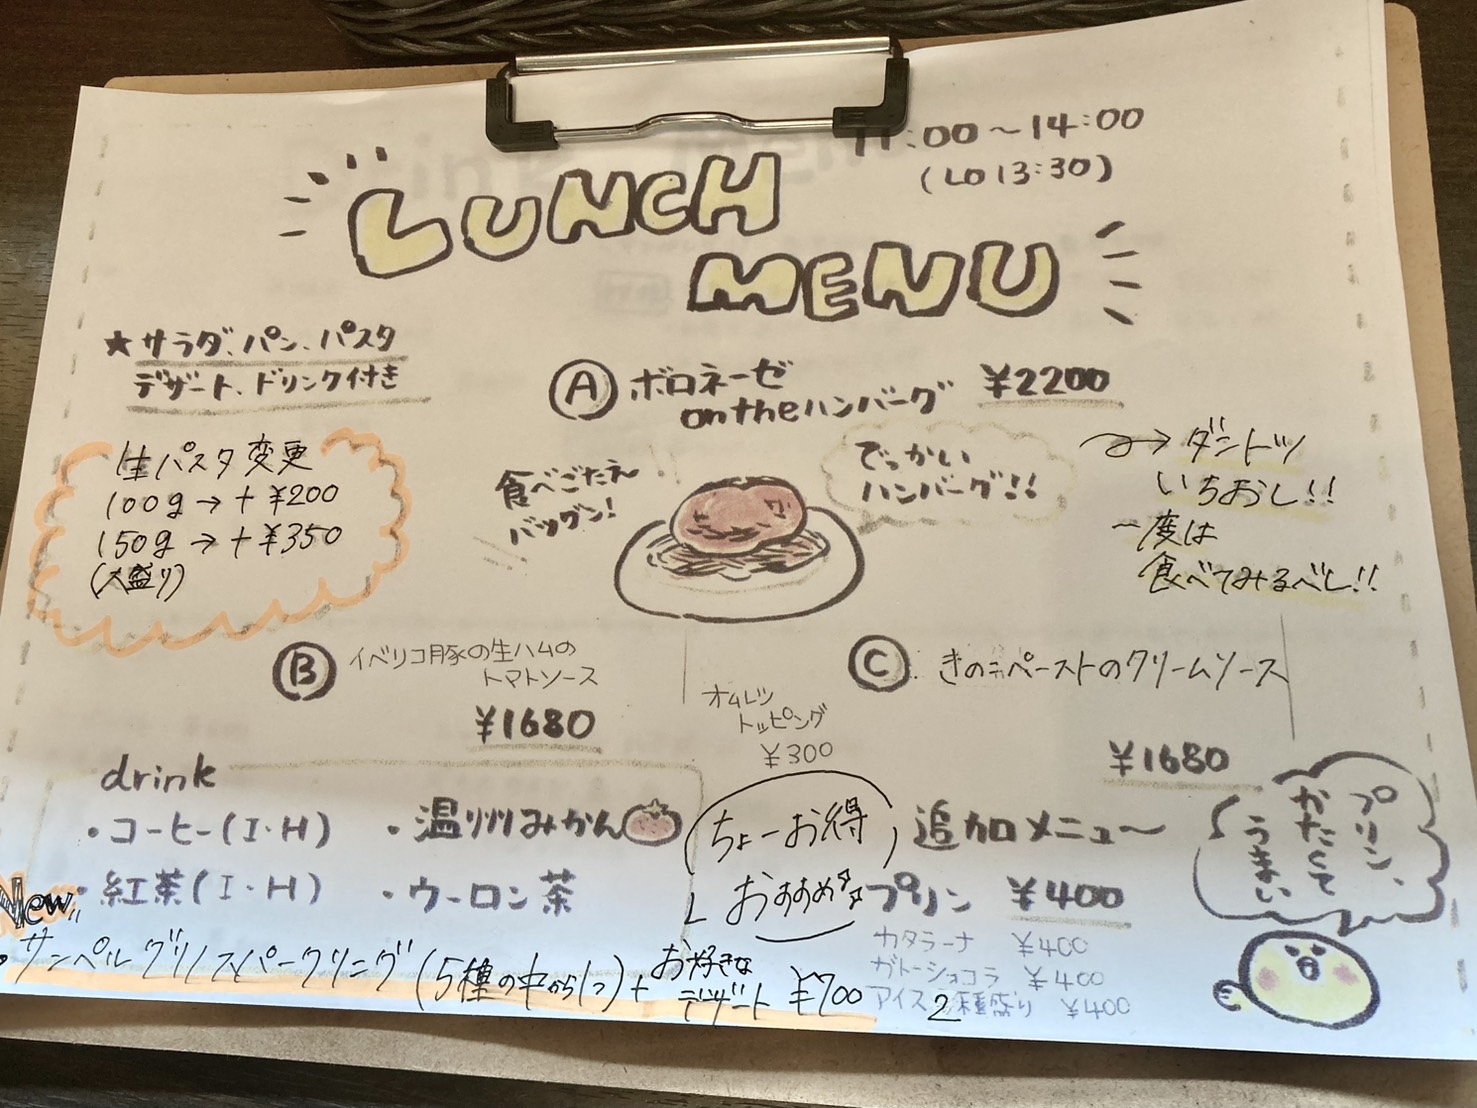 11:00〜14:00
(LO 13:30)
LUNCH
MENU
★サラダ、パン、パスタ
デザート、ドリンク付き
Ⓐ ボロネーゼ
on the ハンバーグ ¥2200
生パスタ変更
100g→+¥200
150g→+¥350
(大盛り)
食べごたえ
バツグン!
でっかい
ハンバーグ!!
→ダントツ
いちおし!!
一度は
食べてみるべし!!
Ⓑ イベリコ豚の生ハムの
トマトソース
¥1680
オムレツ
トッピング
¥300
Ⓒ きのこペーストのクリームソース
¥1680
drink
・コーヒー(I・H)
・温州みかん
・紅茶(I・H)
・ウーロン茶
New
・サンペルグリノスパークリング(5種の中から1つ)+お好きな
デザート ¥700
ちょーお得
おすすめ
追加メニュ〜
プリン ¥400
カタラーナ ¥400
ガトーショコラ ¥400
アイス2種盛り ¥400
プリン、
かたくて
うまい